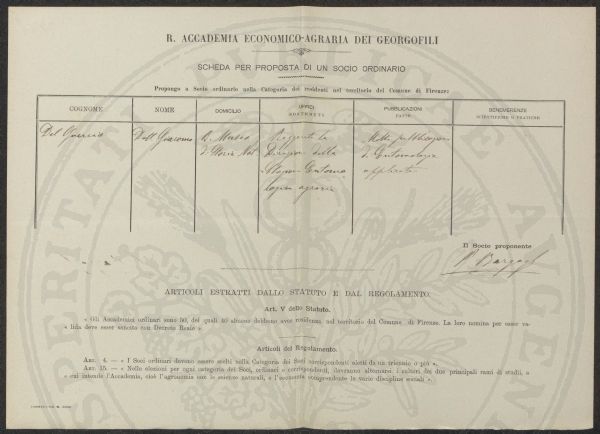 R. ACCADEMIA ECONOMICO-AGRARIA DEI GEORGOFILI
SCHEDA PER PROPOSTA DI UN SOCIO ORDINARIO
Propongo a Socio ordinario nella Categoria dei residenti nel territorio del Comune di Firenze:
COGNOME NOME DOMICILIO UFFICI SOSTENUTI PUBBLICAZIONI FATTE BENEMERENZE SCIENTIFICHE O PRATICHE
Del Guercio Dott Giacomo R. Museo Reggente la Molte pubblicazioni
di Storia Nat Direzione della di Entomologia
Stazione Entomo applicata
logica agraria
Il Socio proponente
ARTICOLI ESTRATTI DALLO STATUTO E DAL REGOLAMENTO.
Art. V dello Statuto.
« Gli Accademici ordinari sono 80, dei quali 40 almeno debbono aver residenza nel territorio del Comune di Firenze. La loro nomina per esser va-
« lida deve esser sancita con Decreto Reale »
Articoli del Regolamento.
ART. 4. — « I Soci ordinari devono essere scelti nella Categoria dei Soci corrispondenti eletti da un triennio o più ».
ART. 15. — « Nelle elezioni per ogni categoria dei Soci, ordinari e corrispondenti, dovranno alternarsi i cultori dei due principali rami di studii, a
« cui intende l'Accademia, cioè l'agronomia con le scienze naturali, e l'economia comprendente le varie discipline sociali ».